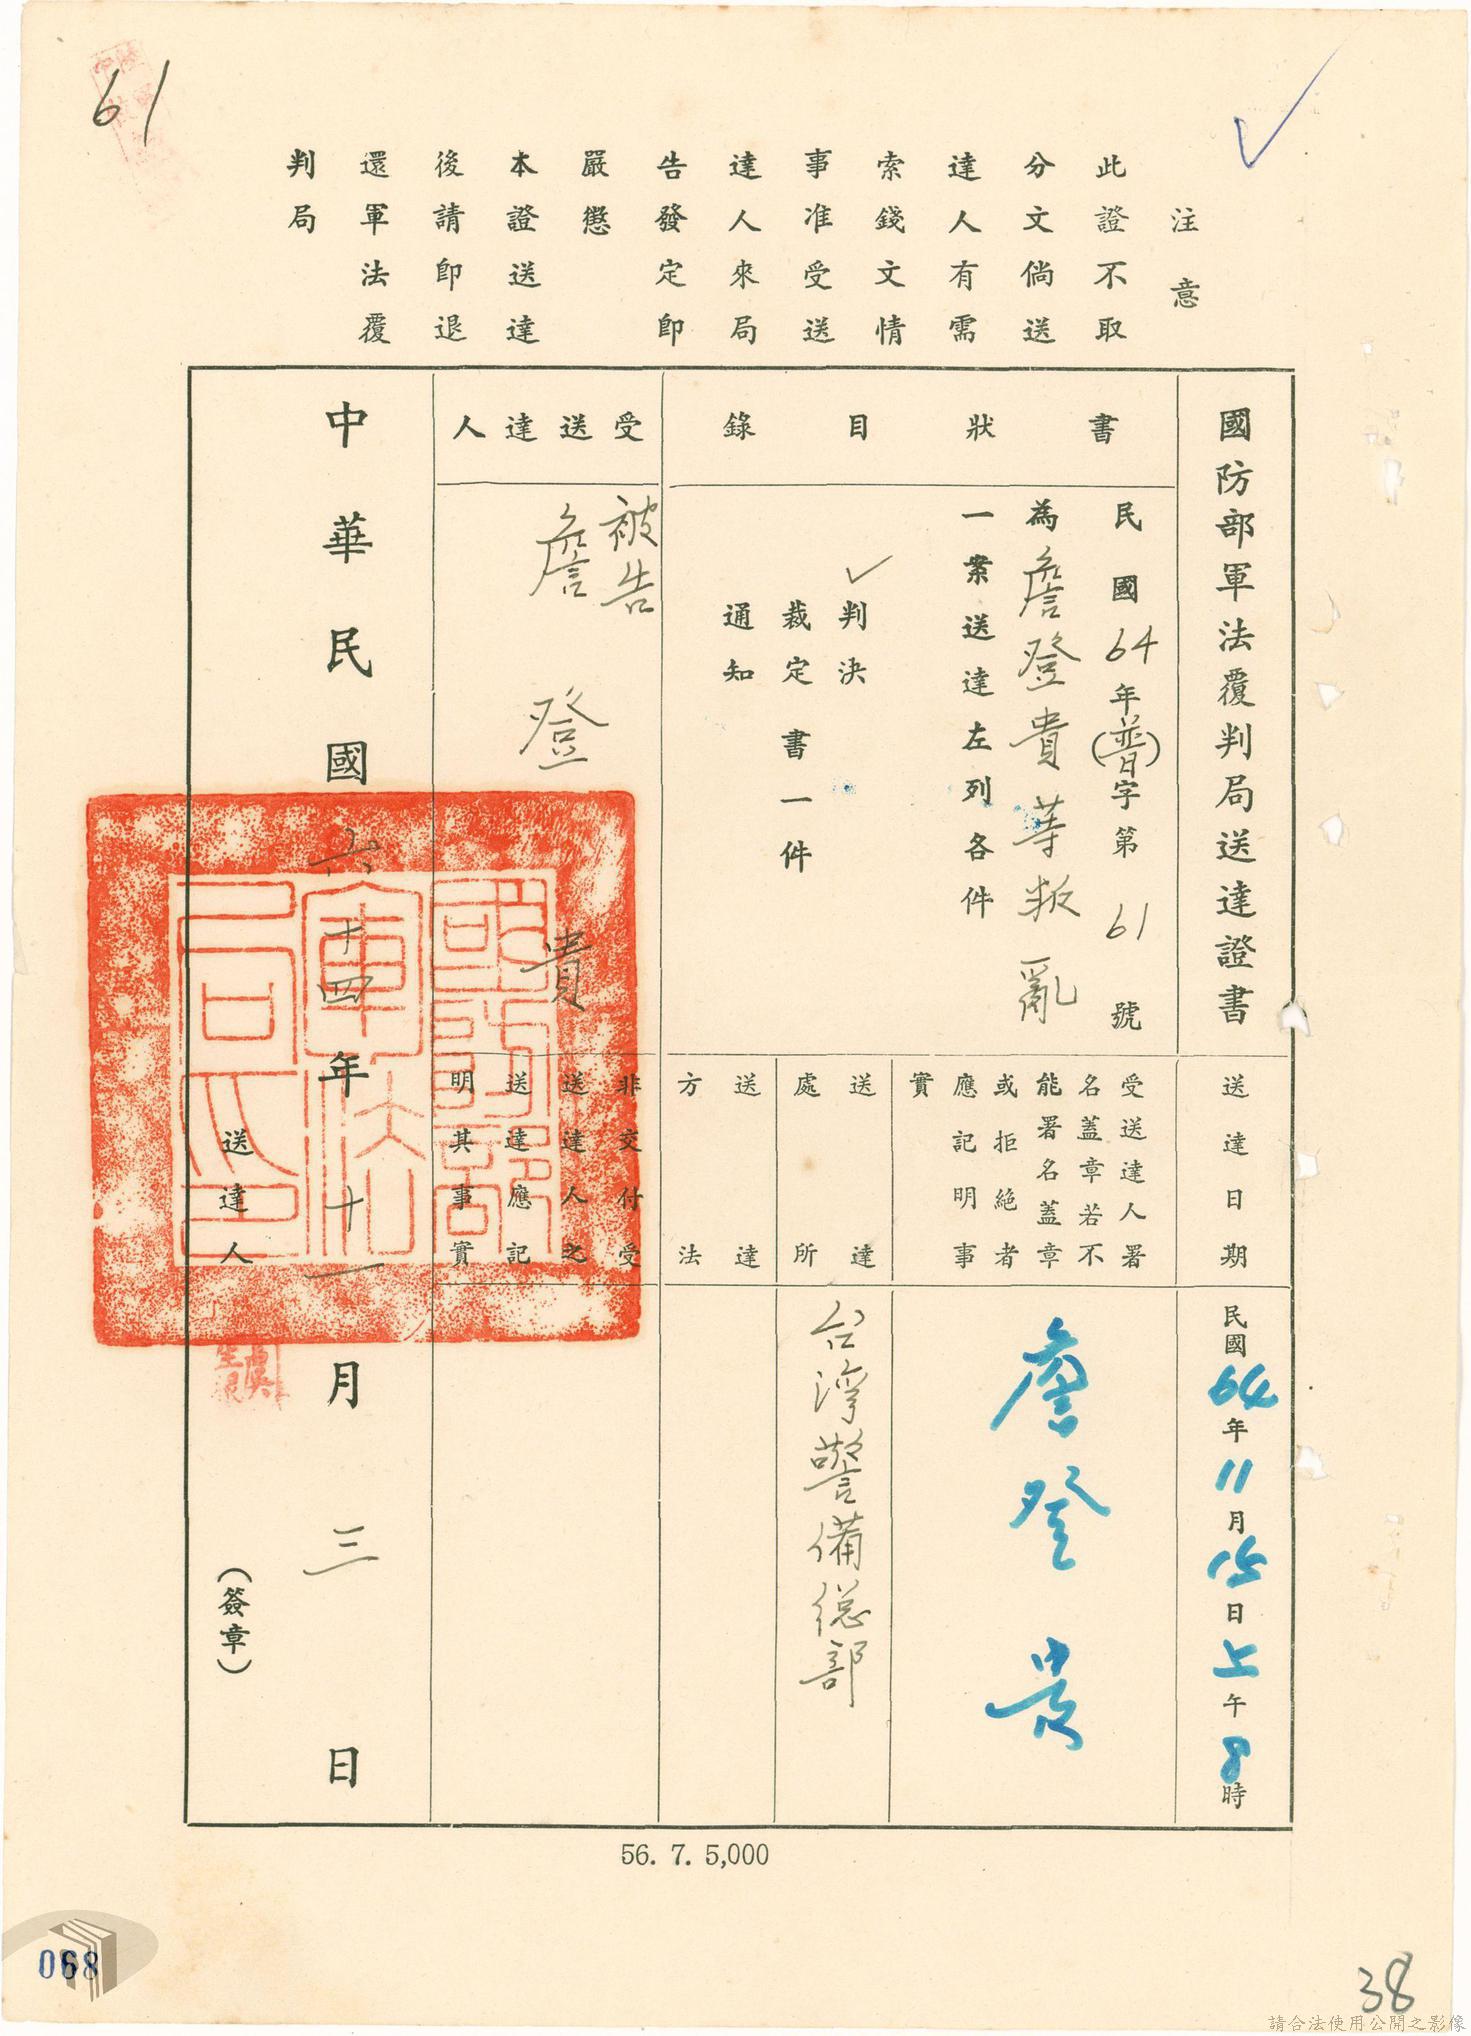 61
注意
此證不取
分文倘送
達人有需
索錢文情
事准受送
達人來局
告發定即
嚴懲
本證送達
後請即退
還軍法覆
判局
國防部軍法覆判局送達證書
書狀目錄
民國64年(普)字第61號
為詹登貴等叛亂
一案送達左列各件
判決
裁定書一件
通知
受送達人
被告
詹登貴
送達日期
民國64年11月15日上午8時
受送達人署
名蓋章若不
能署名蓋章
或拒絕者
應記明事
實
詹登貴
送達
處所
台灣警備總部
送達
方法
非交付受
送達人之
送達應記
明其事實
中華民國六十四年十一月三日
送達人
(簽章)
國防部
軍法覆判
局之印
56. 7. 5,000
068
38
請合法使用公開之影像